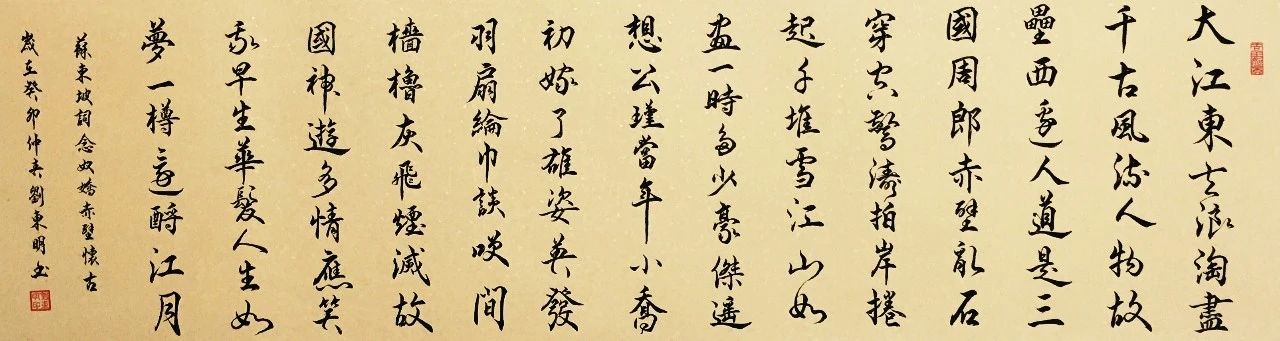 大江東去浪淘盡
千古風流人物故
壘西邊人道是三
國周郎赤壁亂石
穿空驚濤拍岸捲
起千堆雪江山如
畫一時多少豪傑遙
想公瑾當年小喬
初嫁了雄姿英發
羽扇綸巾談咲間
檣櫓灰飛煙滅故
國神遊多情應笑
我早生華髮人生如
夢一樽還酹江月
蘇東坡詞念奴嬌赤壁懷古
歲在癸卯仲春劉東明書